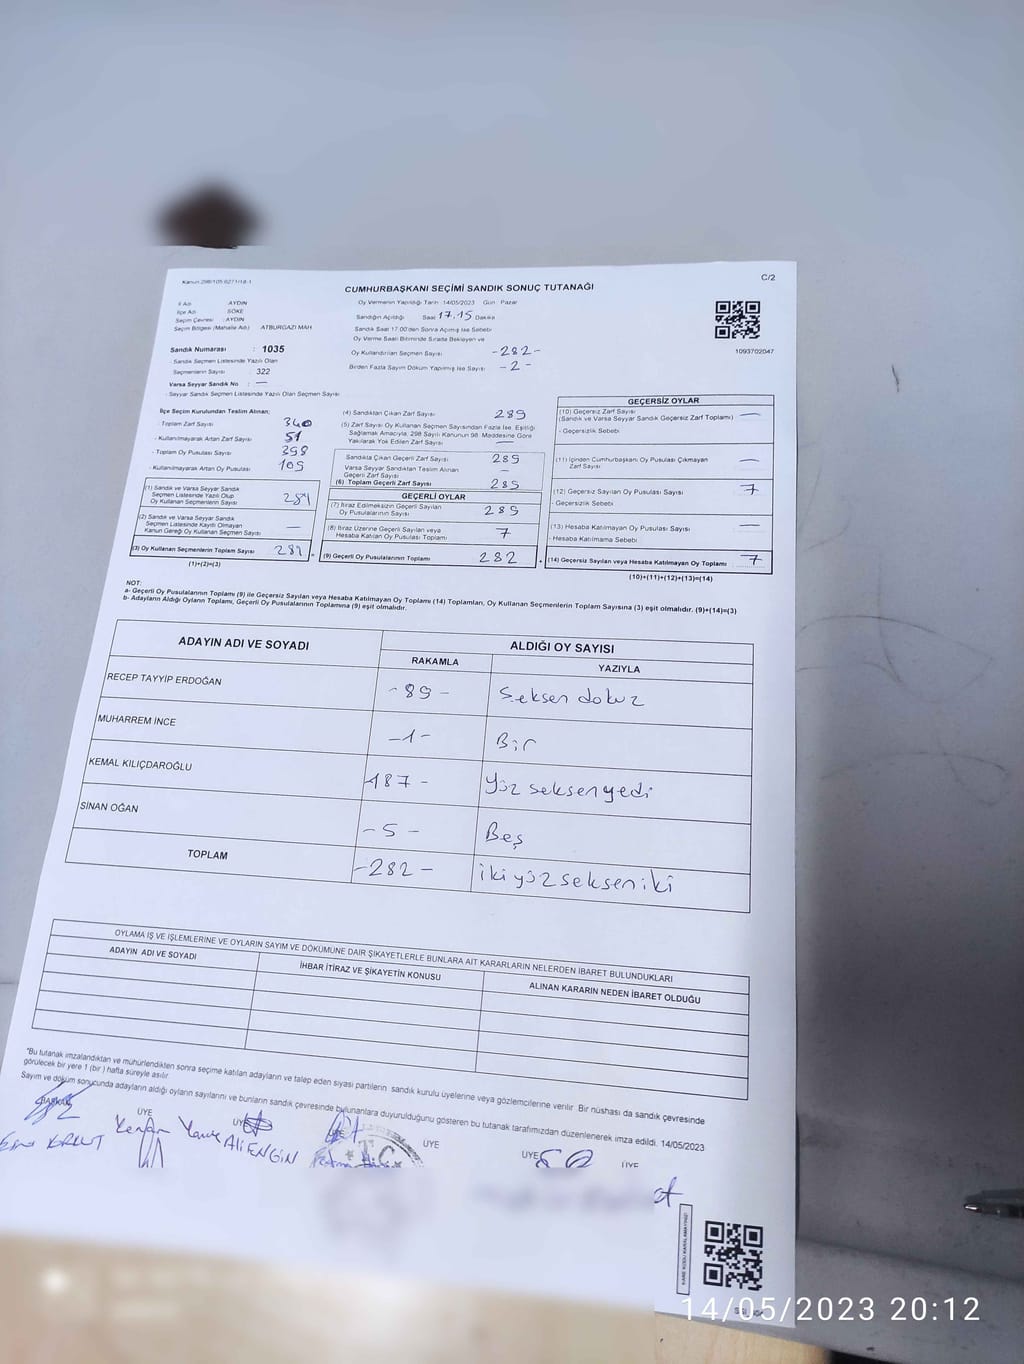 Kanun:298/105 6271/18-1
C/2
CUMHURBAŞKANI SEÇİMİ SANDIK SONUÇ TUTANAĞI
Oy Vermenin Yapıldığı Tarih :14/05/2023 Gün : Pazar
İl Adı AYDIN
İlçe Adı SÖKE
Seçim Çevresi : AYDIN
Seçim Bölgesi (Mahalle Adı) ATBURGAZI MAH
Sandığın Açıldığı Saat 17.15 Dakika
Sandık Saat 17:00'den Sonra Açılmış İse Sebebi
Oy Verme Saati Bitiminde Sırada Bekleyen ve
Oy Kullandırılan Seçmen Sayısı -282-
Birden Fazla Sayım Döküm Yapılmış İse Sayısı -2-
1093702047
Sandık Numarası : 1035
Sandık Seçmen Listesinde Yazılı Olan
Seçmenlerin Sayısı : 322
Varsa Seyyar Sandık No : —
Seyyar Sandık Seçmen Listesinde Yazılı Olan Seçmen Sayısı
İlçe Seçim Kurulundan Teslim Alınan;
- Toplam Zarf Sayısı 340
- Kullanılmayarak Artan Zarf Sayısı 51
- Toplam Oy Pusulası Sayısı 398
- Kullanılmayarak Artan Oy Pusulası 109
(1) Sandık ve Varsa Seyyar Sandık
Seçmen Listesinde Yazılı Olup
Oy Kullanan Seçmenlerin Sayısı 289
(2) Sandık ve Varsa Seyyar Sandık
Seçmen Listesinde Kayıtlı Olmayan
Kanun Gereği Oy Kullanan Seçmen Sayısı —
(3) Oy Kullanan Seçmenlerin Toplam Sayısı 289
(1)+(2)=(3)
(4) Sandıktan Çıkan Zarf Sayısı 289
(5) Zarf Sayısı Oy Kullanan Seçmen Sayısından Fazla İse, Eşitliği
Sağlamak Amacıyla, 298 Sayılı Kanunun 98. Maddesine Göre
Yakılarak Yok Edilen Zarf Sayısı —
Sandıkta Çıkan Geçerli Zarf Sayısı 289
Varsa Seyyar Sandıktan Teslim Alınan
Geçerli Zarf Sayısı —
(6) Toplam Geçerli Zarf Sayısı 289
GEÇERLİ OYLAR
(7) İtiraz Edilmeksizin Geçerli Sayılan
Oy Pusulalarının Sayısı 289
(8) İtiraz Üzerine Geçerli Sayılan veya
Hesaba Katılan Oy Pusulası Toplamı 7
(9) Geçerli Oy Pusulalarının Toplamı 282
GEÇERSİZ OYLAR
(10) Geçersiz Zarf Sayısı —
(Sandık ve Varsa Seyyar Sandık Geçersiz Zarf Toplamı)
- Geçersizlik Sebebi
(11) İçinden Cumhurbaşkanı Oy Pusulası Çıkmayan
Zarf Sayısı —
(12) Geçersiz Sayılan Oy Pusulası Sayısı 7
- Geçersizlik Sebebi
(13) Hesaba Katılmayan Oy Pusulası Sayısı —
- Hesaba Katılmama Sebebi
(14) Geçersiz Sayılan veya Hesaba Katılmayan Oy Toplamı 7
(10)+(11)+(12)+(13)=(14)
NOT:
a- Geçerli Oy Pusulalarının Toplamı (9) ile Geçersiz Sayılan veya Hesaba Katılmayan Oy Toplamı (14) Toplamları, Oy Kullanan Seçmenlerin Toplam Sayısına (3) eşit olmalıdır. (9)+(14)=(3)
b- Adayların Aldığı Oyların Toplamı, Geçerli Oy Pusulalarının Toplamına (9) eşit olmalıdır.
ADAYIN ADI VE SOYADI
ALDIĞI OY SAYISI
RAKAMLA YAZIYLA
RECEP TAYYİP ERDOĞAN -89- Seksen dokuz
MUHARREM İNCE -1- Bir
KEMAL KILIÇDAROĞLU 187- Yüz seksen yedi
SİNAN OĞAN -5- Beş
TOPLAM -282- iki yüz seksen iki
OYLAMA İŞ VE İŞLEMLERİNE VE OYLARIN SAYIM VE DÖKÜMÜNE DAİR ŞİKAYETLERLE BUNLARA AİT KARARLARIN NELERDEN İBARET BULUNDUKLARI
ADAYIN ADI VE SOYADI İHBAR İTİRAZ VE ŞİKAYETİN KONUSU ALINAN KARARIN NEDEN İBARET OLDUĞU
*Bu tutanak imzalandıktan ve mühürlendikten sonra seçime katılan adayların ve talep eden siyasi partilerin sandık kurulu üyelerine veya gözlemcilerine verilir. Bir nüshası da sandık çevresinde
görülecek bir yere 1 (bir) hafta süreyle asılır.
Sayım ve döküm sonucunda adayların aldığı oyların sayılarını ve bunların sandık çevresinde bulunanlara duyurulduğunu gösteren bu tutanak tarafımızdan düzenlenerek imza edildi. 14/05/2023
BAŞKAN ÜYE ÜYE ÜYE ÜYE ÜYE
Ali ENGİN
14/05/2023 20:12